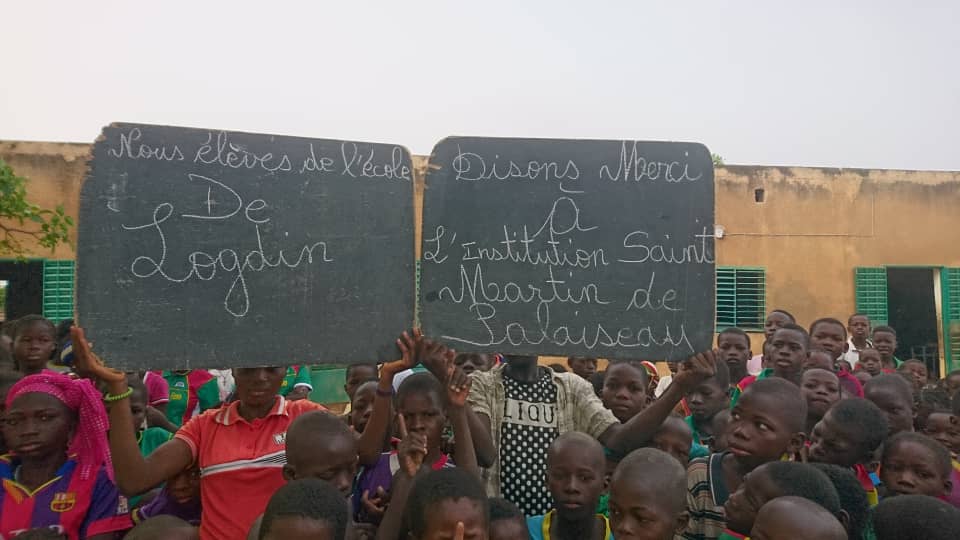 Nous élèves de l'école
De
Logdin
Disons Merci
à
L'Institution Saint
Martin de
Palaiseau
LIQU